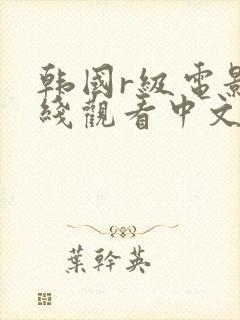 韩國r級電影
綫觀看中文
葉幹英